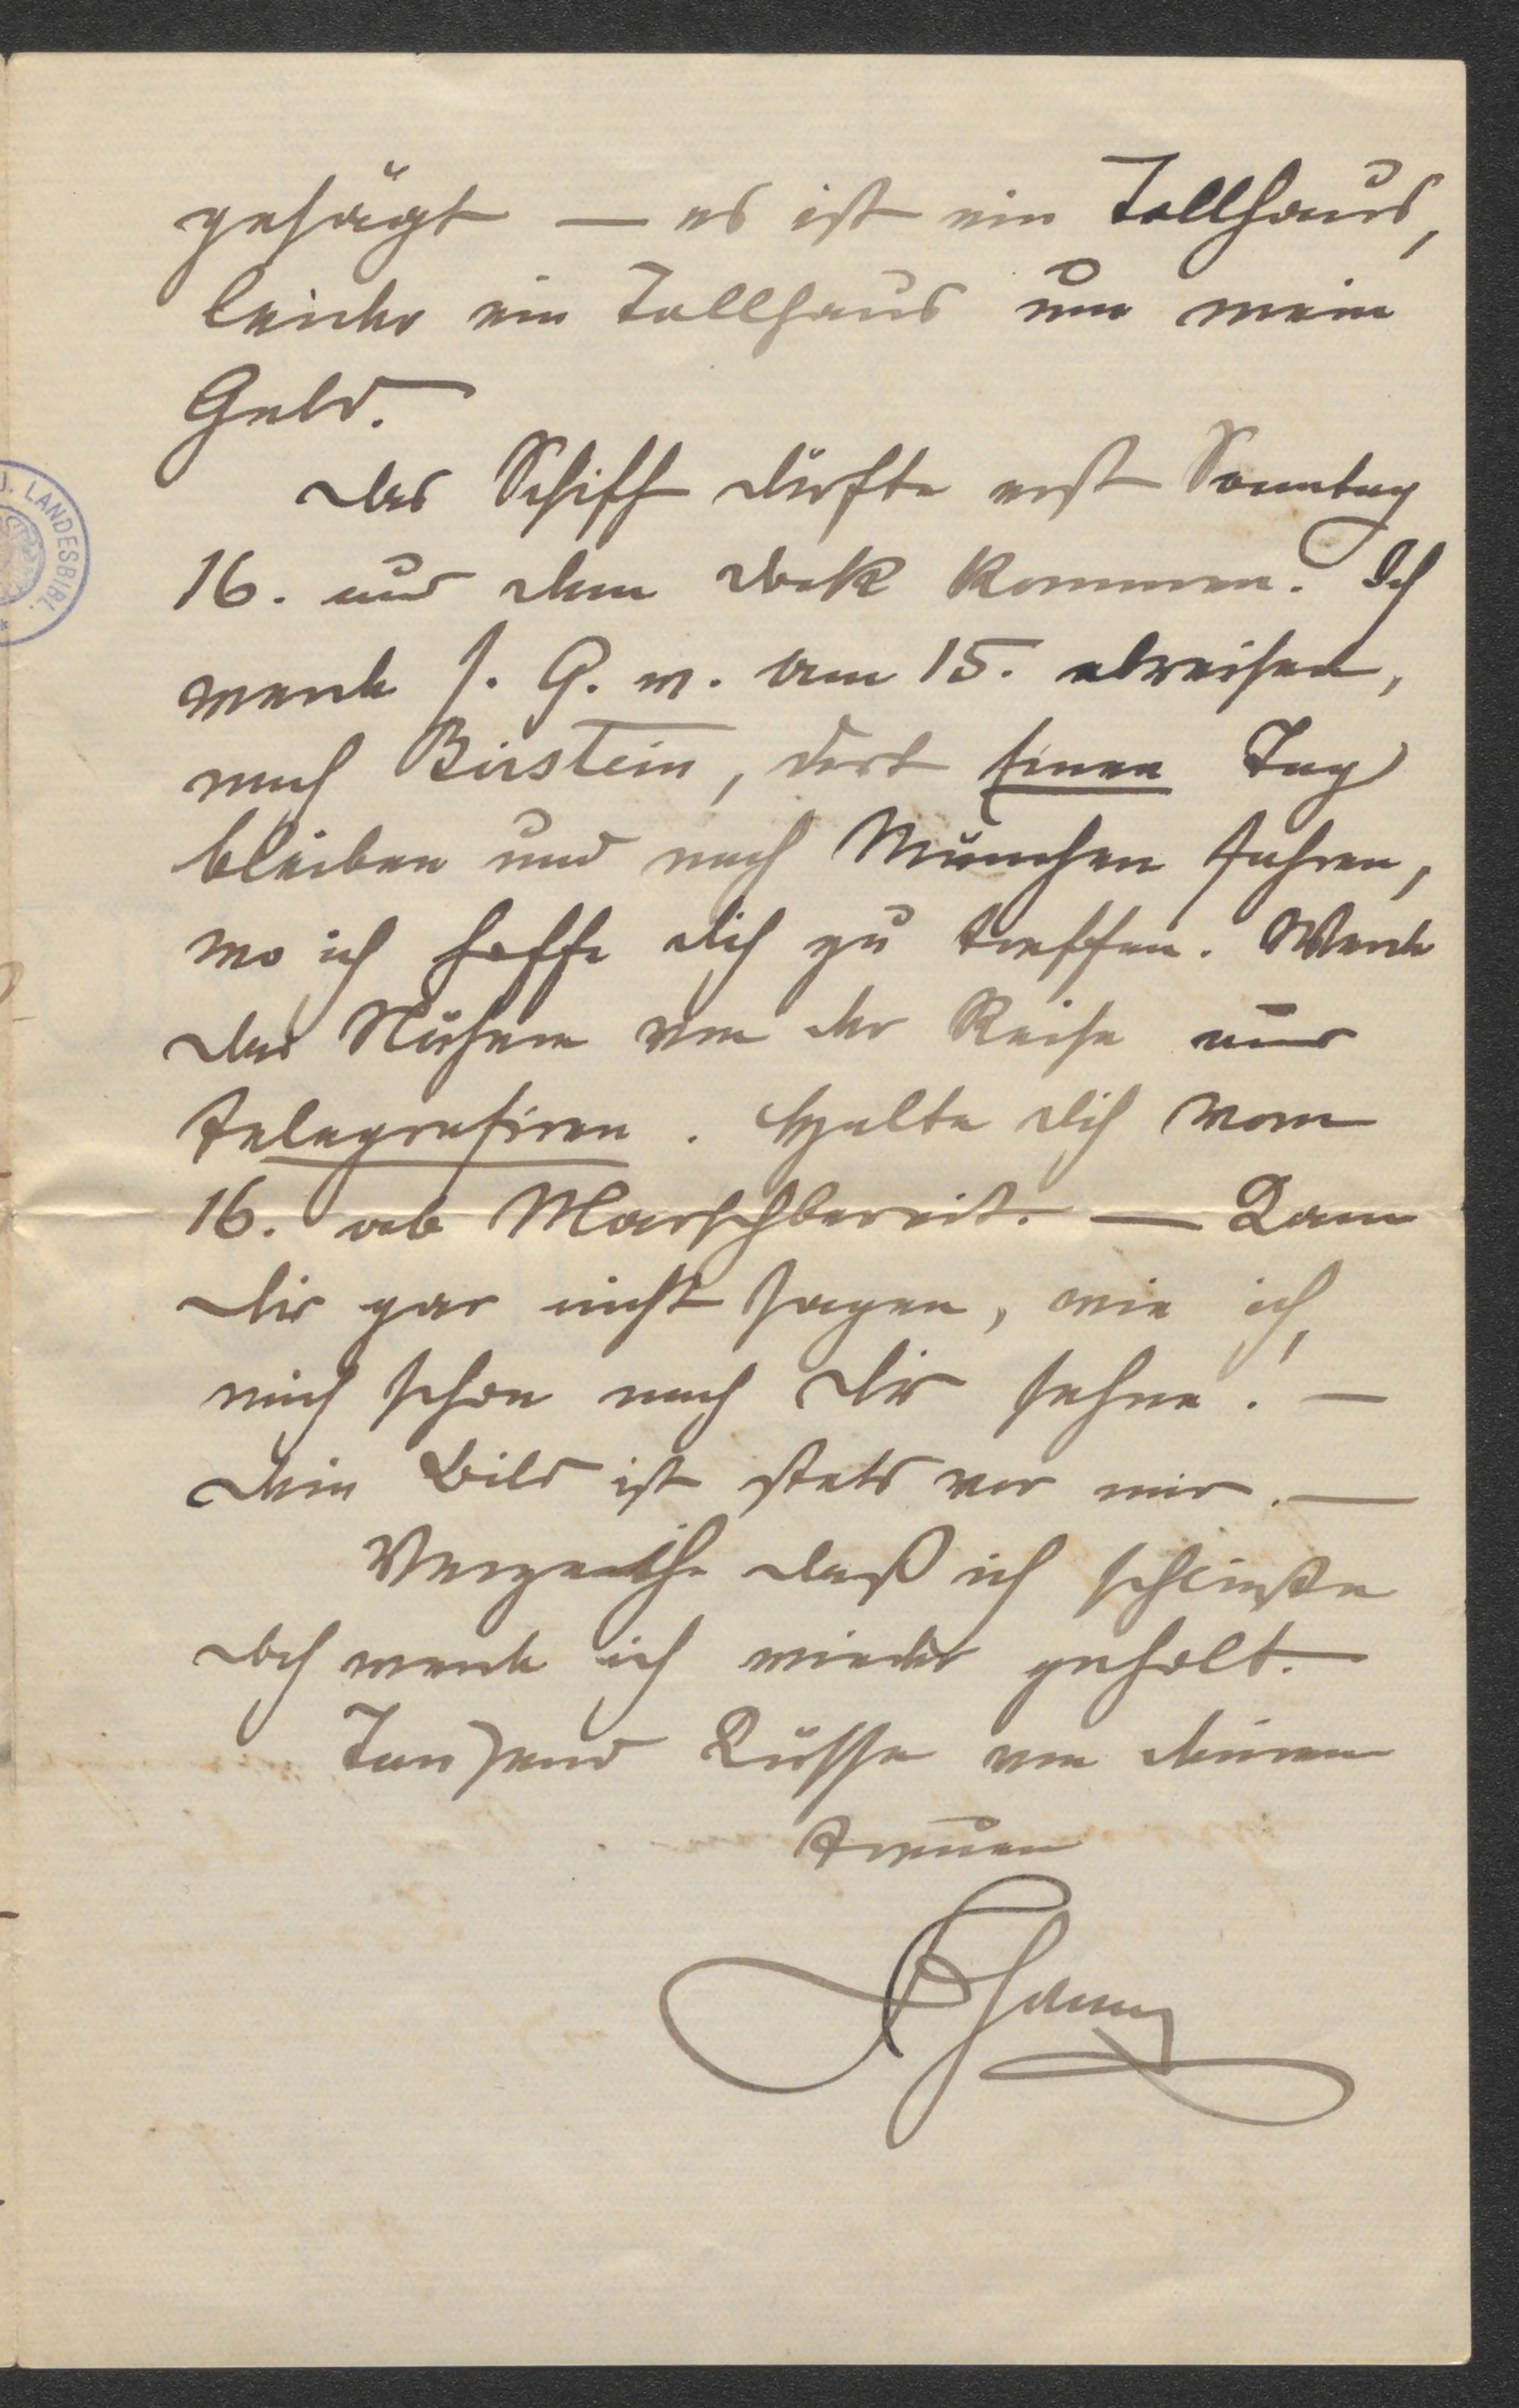 gesägt — es ist ein Tollhaus,
leider ein Tollhaus um mein
Geld.
das Schiff dürfte erst Sonntag
16. aus dem dok kommen. Ich
werde s. G. w. am 15. abreisen,
nach Birstein, dort Einen Tag
bleiben und nach München fahren,
wo ich hoffe dich zu treffen. Werde
das Nähere von der Reise aus
telegrafiren. Halte dich vom
16. ab Marschbereit. — Kann
dir gar nicht sagen, wie ich
mich schon nach dir sehne! —
dein Bild ist stets vor mir. —
Verzeihe daß ich schließe
doch werde ich wieder geholt.
Tausend Küsse von deinem
treuen
LANDESBIBL.